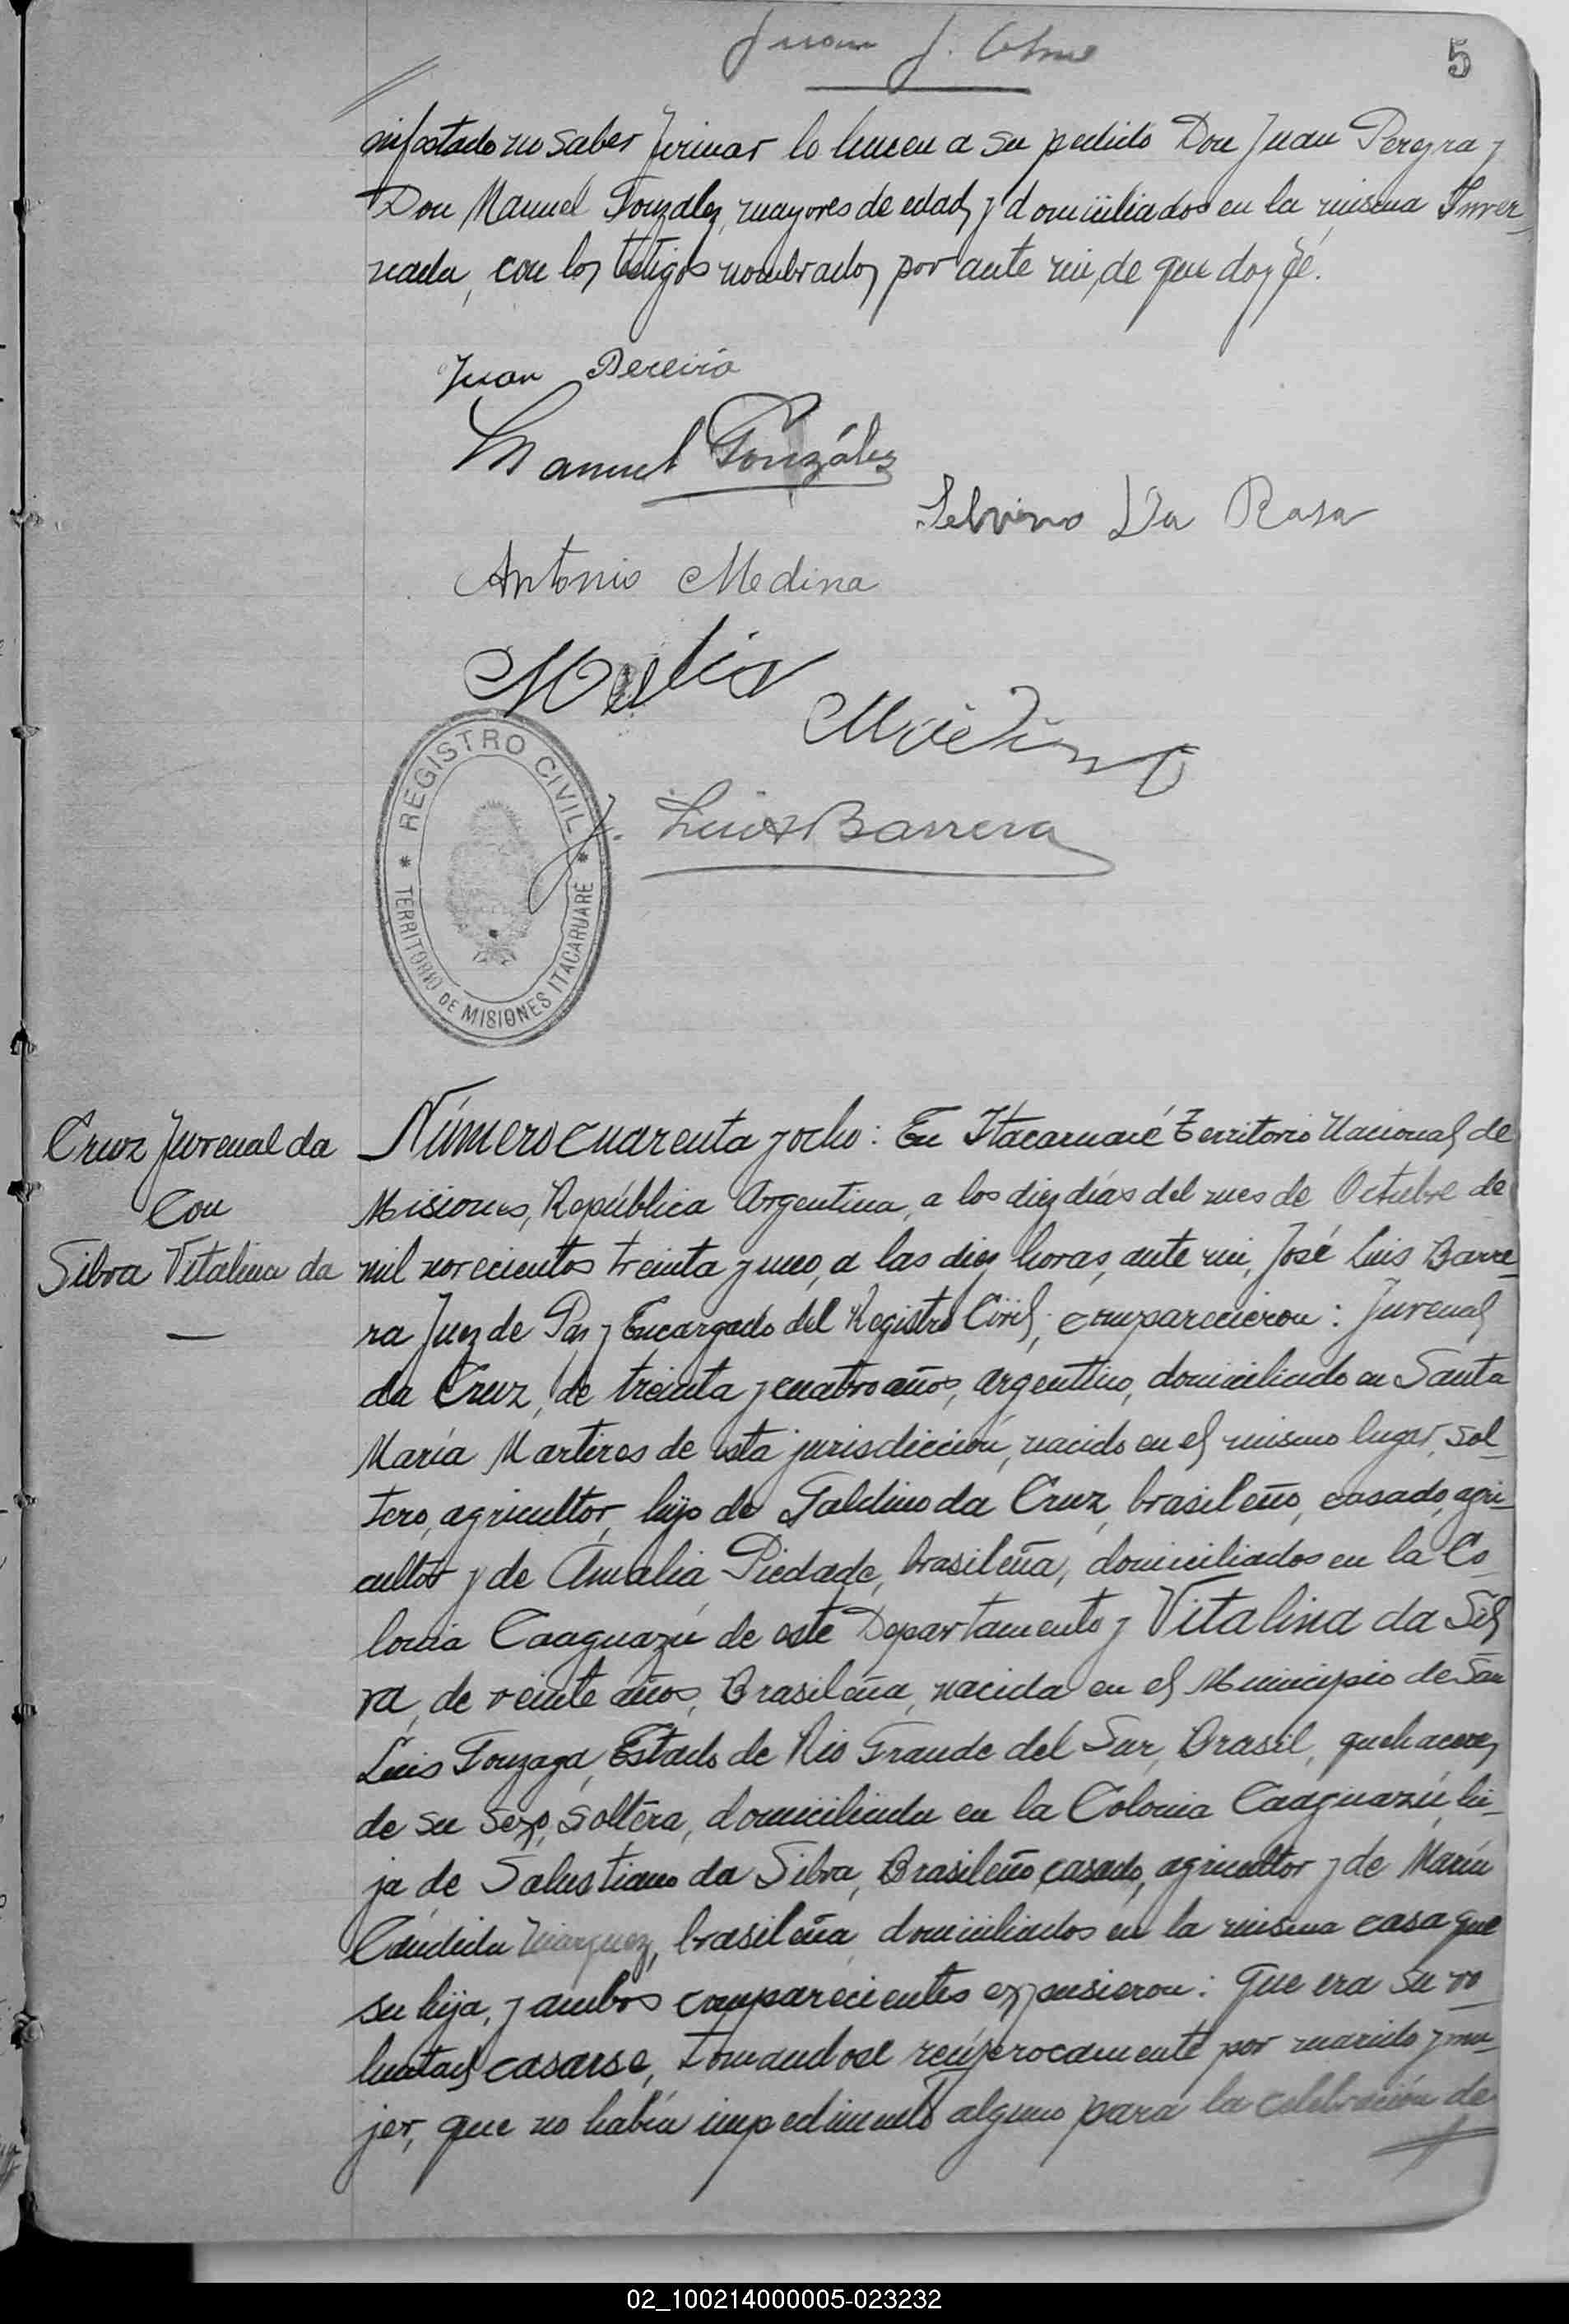 5
nifestado no saber firmar lo hacen a su pedido Don Juan Pereyra y
Don Manuel Gonzalez, mayores de edad y domiciliados en la misma Inver-
nada, con los testigos nombrados por ante mi, de que doy fé.
Juan Pereira
Manuel González
Da Rosa
Antonio Medina
Luis Barrera
REGISTRO CIVIL
TERRITORIO DE MISIONES ITACARUARÉ
Cruz Juvenal da
Con
Silva Vitalina da
Número cuarenta y ocho: En Itacaruaré Territorio Nacional de
Misiones, República Argentina, a los diez días del mes de Octubre de
mil novecientos treinta y uno, a las diez horas, ante mi, José Luis Barre-
ra Juez de Paz y Encargado del Registro Civil, comparecieron: Juvenal
da Cruz, de treinta y cuatro años, argentino, domiciliado en Santa
María Martires de esta jurisdicción, nacido en el mismo lugar, sol-
tero, agricultor, hijo de Galdino da Cruz, brasileño, casado, agri-
cultor y de Amalia Piedade, brasileña, domiciliados en la Co-
lonia Caaguazú de este Departamento y Vitalina da Sil
va, de veinte años, Brasileña, nacida en el Municipio de San
Luis Gonzaga, Estado de Rio Grande del Sur, Brasil, quehaceres
de su sexo, soltera, domiciliada en la Colonia Caaguazú, hi-
ja de Salustiano da Silva, Brasileño, casado, agricultor y de María
Cándida Marquez, brasileña, domiciliados en la misma casa que
su hija, y ambos comparecientes expusieron: Que era su vo-
luntad casarse, tomandose recíprocamente por marido y mu-
jer, que no había impedimento alguno para la celebración de
02_100214000005-023232